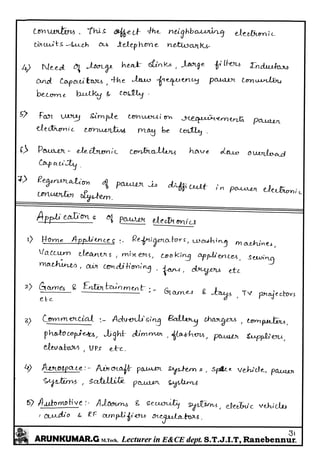 converters. This affect the neighbouring electronic
circuits such as telephone networks.
4) Need of large heat sinks, large filters Inductors
and Capacitors, the low frequency power converters
become bulky & costly.
5) For very simple conversion requirements power
electronic converters may be costly.
6) Power-electronic controllers have low overload
Capacity.
7) Regeneration of power is difficult in power electronic
converter system.
Applications of power electronics
1) Home Appliences :- Refrigerators, washing machines,
Vaccum cleaners, mixers, cooking appliences, sewing
machines, air conditioning. fans, dryers etc
2) Games & Entertainment :- Games & toys, TV projectors
etc
3) Commercial :- Advertising Battery chargers, computers,
photocopiers, light dimmer, flashers, power supplies,
elevators, UPS etc.
4) Aerospace :- Aircraft power systems, space vehicle power
systems, satellite power systems
5) Automotive :- Alarms & security systems, electric vehicles
, audio & RF amplifiers regulators.
31
ARUNKUMAR.G M.Tech, Lecturer in E&CE dept. S.T.J.I.T, Ranebennur.